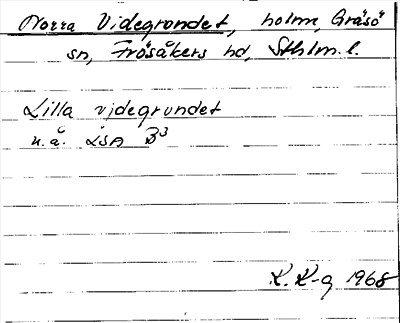 Norra Videgrundet, holm, Gräsö
sn, Frösåkers hd, Sthlm. l.
Lilla videgrundet
u.å. LSA B3
K. K-g 1968